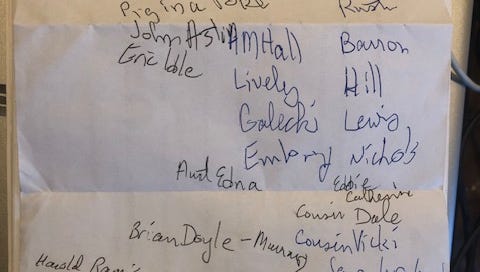 Rush
John Astin AMHall Barron
Eric Idle
Lively Hill
Galecki Lewis,
Embry Nichols
Aunt Edna
Eddie
Catherine
Cousin Dale
Brian Doyle-Murray Cousin Vicki
Harold